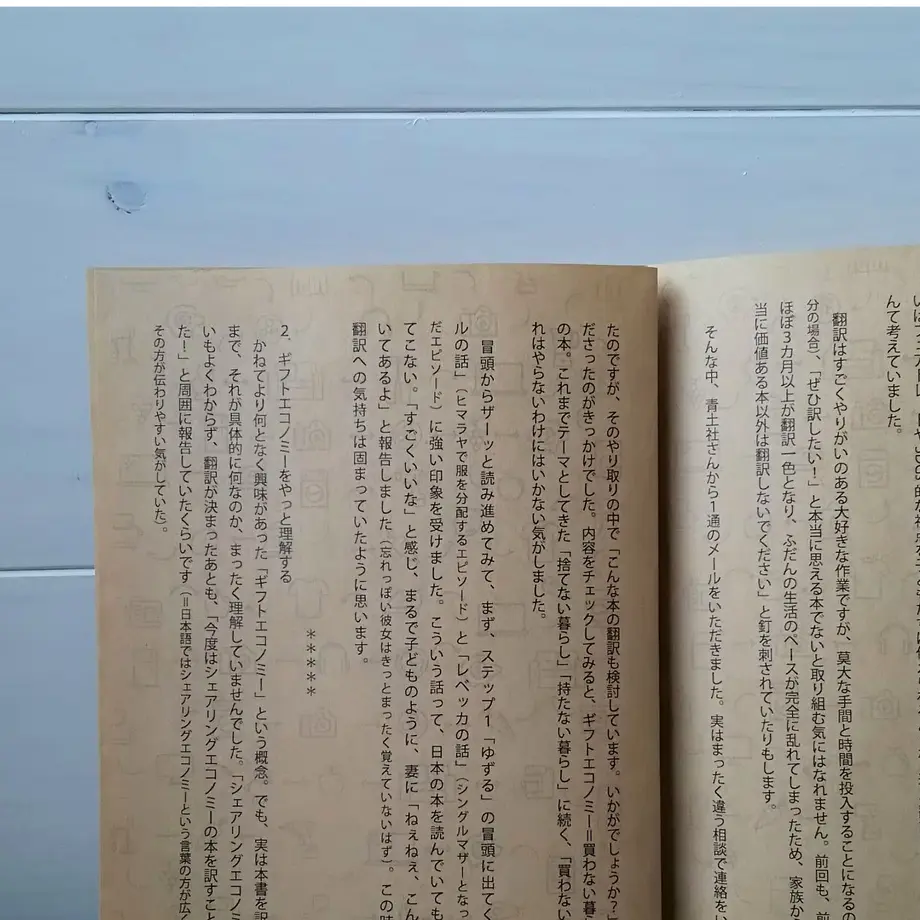 んて考えていました。
翻訳はすごくやりがいのある大好きな作業ですが、莫大な手間と時間を投入することになるの
分の場合）、「ぜひ訳したい！」と本当に思える本でないと取り組む気にはなれません。前回も、前
ほぼ3カ月以上が翻訳一色となり、ふだんの生活のペースが完全に乱れてしまったため、家族か
当に価値ある本以外は翻訳しないでください」と釘を刺されていたりもします。
そんな中、青土社さんから1通のメールをいただきました。実はまったく違う相談で連絡をい
たのですが、そのやり取りの中で「こんな本の翻訳も検討しています。いかがでしょうか？」
ださったのがきっかけでした。内容をチェックしてみると、ギフトエコノミー＝買わない暮ら
の本。これまでテーマとしてきた「捨てない暮らし」「持たない暮らし」に続く、「買わない
れはやらないわけにはいかない気がしました。
冒頭からザーッと読み進めてみて、まず、ステップ1「ゆずる」の冒頭に出てく
ルの話」（ヒマラヤで服を分配するエピソード）と「レベッカの話」（シングルマザーとなっ
だエピソード）に強い印象を受けました。こういう話って、日本の本を読んでいても
てこない。「すごくいいな」と感じ、まるで子どものように、妻に「ねえねえ、こん
いてあるよ」と報告しました（忘れっぽい彼女はきっとまったく覚えていないはず）。この時
翻訳への気持ちは固まっていたように思います。
＊＊＊＊＊
2. ギフトエコノミーをやっと理解する
かねてより何となく興味があった「ギフトエコノミー」という概念。でも、実は本書を訳
まで、それが具体的に何なのか、まったく理解していませんでした。「シェアリングエコノミ
いもよくわからず、翻訳が決まったあとも、「今度はシェアリングエコノミーの本を訳すこと
た！」と周囲に報告していたくらいです（＝日本語ではシェアリングエコノミーという言葉の方が広く
その方が伝わりやすい気がしていた）。